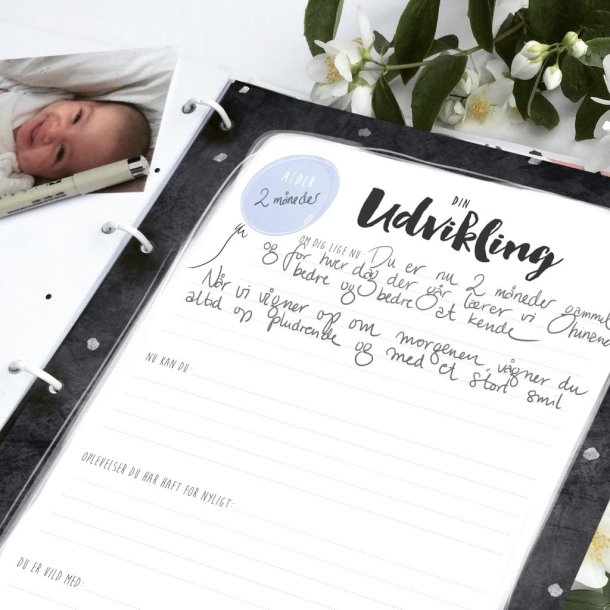 ALDER:
2 måneder
DIN
Udvikling
OM DIG LIGE NU: Du er nu 2 måneder gammel
og for hver dag der går lærer vi
bedre og bedre at kende
Når vi vågner op om morgenen, vågner du
altid op pludrende og med et stort smil
NU KAN DU:
OPLEVELSER DU HAR HAFT FOR NYLIGT:
DU ER VILD MED: